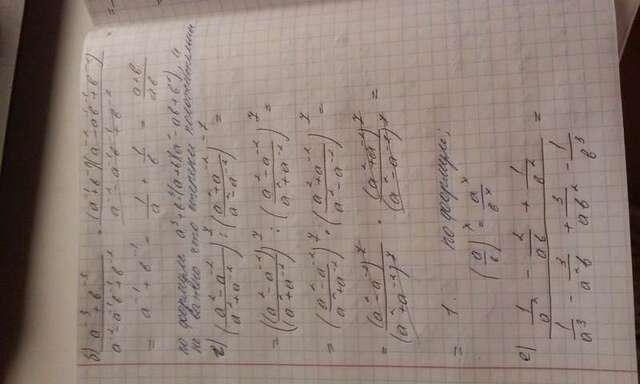 б) (a⁻³+в⁻³)/(a⁻²-a⁻¹в⁻¹+в⁻²) = (a⁻¹+в⁻¹)(a⁻²-a⁻¹в⁻¹+в⁻²)/(a⁻²-a⁻¹в⁻¹+в⁻²) =
= a⁻¹+в⁻¹ = 1/a + 1/в = (a+в)/(aв)
по формуле a³+в³=(a+в)(a²-aв+в²), и
не важно что степени положительны
г) ((a²-a⁻²)/(a²+a⁻²))⁷ : ((a²+a⁻²)/(a²-a⁻²))⁻⁷ =
= ((a²-a⁻²)/(a²+a⁻²))⁷ : ((a²-a⁻²)/(a²+a⁻²))⁷ =
= ((a²-a⁻²)/(a²+a⁻²))⁷ · ((a²+a⁻²)/(a²-a⁻²))⁷ =
= (a²-a⁻²)⁷/(a²+a⁻²)⁷ · (a²+a⁻²)⁷/(a²-a⁻²)⁷ =
= 1. по формуле;
(a/в)ˣ = aˣ/вˣ
е) (1/a² - 2/aв + 1/в²)/(1/a³ - 3/a²в + 3/aв² - 1/в³) =